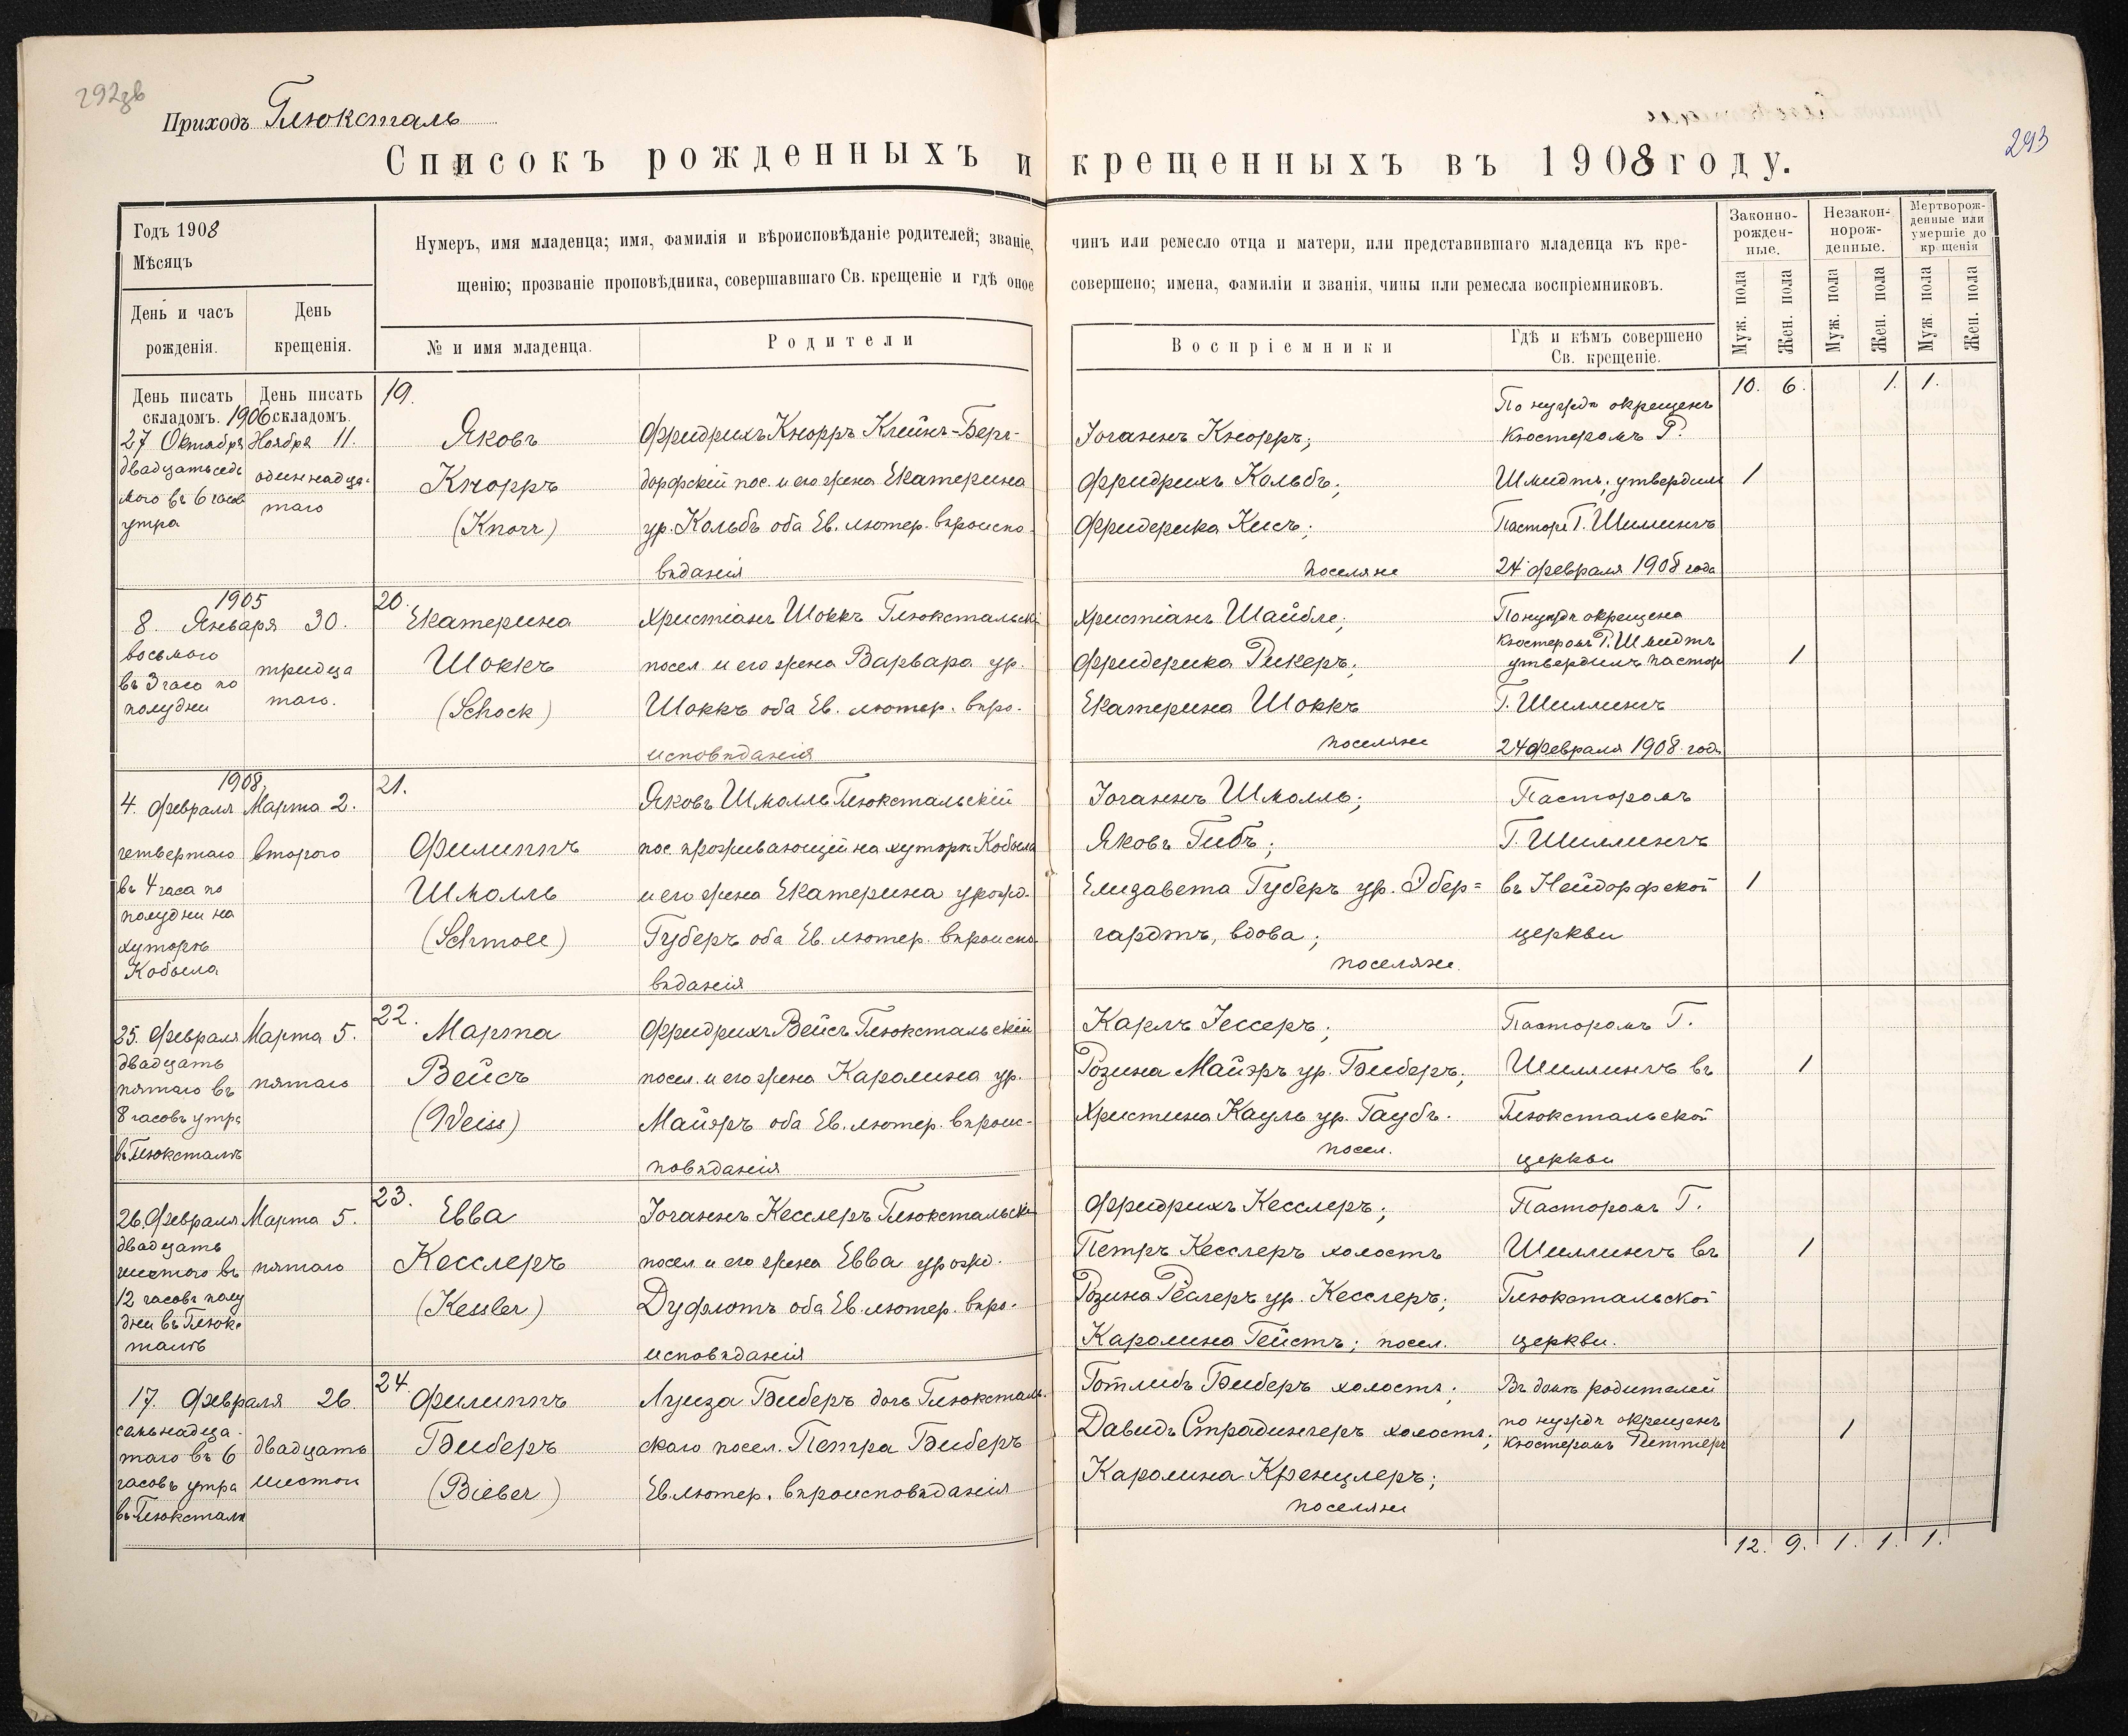 292зв
Приходъ Глюксталь
293
Списокъ рожденныхъ и крещенныхъ въ 1908 году.
Годъ 1908
Мѣсяцъ
День и часъ
рожденія.
День
крещенія.
Нумеръ, имя младенца; имя, фамилія и вѣроисповѣданіе родителей; званіе, чинъ или ремесло отца и матери, или представившаго младенца къ кре-
щенію; прозваніе проповѣдника, совершавшаго Св. крещеніе и гдѣ оное совершено; имена, фамиліи и званія, чины или ремесла воспріемниковъ.
№ и имя младенца.
Родители
Воспріемники
Гдѣ и кѣмъ совершено
Св. крещеніе.
Законно-
рожден-
ные.
Незакон-
норож-
денные.
Мертворож-
денные или
умершіе до
крщенія
Муж. пола
Жен. пола
Муж. пола
Жен. пола
Муж. пола
Жен. пола
День писать
складомъ.
День писать
складомъ.
10. 6. 1. 1.
1906
27 Октября
двадцать седь
мого въ 6 часов
утра
Ноября 11.
одиннадца-
таго
19.
Яковъ
Кнорръ
(Knorr)
Фридрихъ Кнорръ Клейнъ-Берг-
дорфскій пос. и его жена Екатерина
ур. Кольбъ оба Ев. лютер. вѣроиспо-
вѣданія
Іоганнъ Кнорръ;
Фридрихъ Кольбъ;
Фридерика Кисъ;
поселяне
По нуждѣ окрещенъ
Кюстеромъ Г.
Шмидтъ; утвердилъ
Пасторъ Г. Шиллингъ
24 февраля 1908 года
1
1905
8. Января 30.
восьмого
въ 3 часа по
полудни
тридца
таго.
20.
Екатерина
Шоккъ
(Schock)
Христіанъ Шоккъ Глюкстальскі
посел. и его жена Варвара ур.
Шоккъ оба Ев. лютер. вѣро-
исповѣданія
Христіанъ Шайбле;
Фридерика Рикеръ;
Екатерина Шоккъ
поселяне
По нуждѣ окрещена
Кюстеромъ Г. Шмидтъ
утвердилъ пастор
Г. Шиллингъ
24 февраля 1908 года
1
1908.
4. Февраля
четвертаго
въ 4 часа по
полудни на
хуторѣ
Кобыла
Марта 2.
второго
21.
Филиппъ
Шмолль
(Schmoll)
Яковъ Шмолль Глюкстальскій
пос. проживающій на хуторѣ Кобыла
и его жена Екатерина урожд.
Губеръ оба Ев. лютер. вѣроиспо-
вѣданія
Іоганнъ Шмолль;
Яковъ Гибъ;
Елизавета Губеръ ур. Эбер=
гардтъ, вдова;
поселяне.
Пасторомъ
Г. Шиллингъ
въ Нейдорфской
церкви
1
25. Февраля
двадцать
пятаго въ
8 часовъ утра
въ Глюксталѣ
Марта 5.
пятаго
22.
Марта
Вейсъ
(Weiss)
Фридрихъ Вейсъ Глюкстальскій
посел. и его жена Каролина ур.
Майэръ оба Ев. лютер. вѣроис-
повѣданія
Карлъ Іессеръ;
Розина Майэръ ур. Биберъ;
Христина Кауль ур. Гаубъ.
посел.
Пасторомъ Г.
Шиллингъ въ
Глюкстальской
церкви
1
26. Февраля
двадцать
шестого въ
12 часовъ полу
дни въ Глюк-
сталѣ
Марта 5.
пятаго
23.
Евва
Кесслеръ
(Kessler)
Іоганнъ Кесслеръ Глюкстальскі
посел. и его жена Евва урожд.
Дуфлотъ оба Ев. лютер. вѣро-
исповѣданія
Фридрихъ Кесслеръ;
Петръ Кесслеръ холостъ
Розина Рёслеръ ур. Кесслеръ;
Каролина Гейстъ; посел.
Пасторомъ Г.
Шиллингъ въ
Глюкстальской
церкви.
1
17. Февраля 26.
семьнадца-
таго въ 6
часовъ утра
въ Глюксталѣ
двадцать
шестои
24.
Филиппъ
Биберъ
(Bieber)
Луиза Биберъ дочь Глюксталь-
скаго посел. Петра Биберъ
Ев. лютер. вѣроисповѣданія
Готлибъ Биберъ холостъ;
Давидъ Страдингеръ холостъ;
Каролина Кренцлеръ;
поселяне
Въ домѣ родителей
по нуждѣ окрещенъ
Кюстеромъ Риттеръ
1
12. 9. 1. 1. 1.